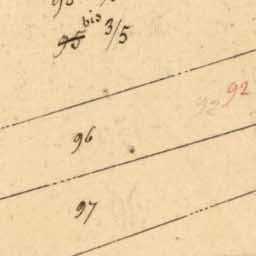 95 bis 3/5
92 92
96
97